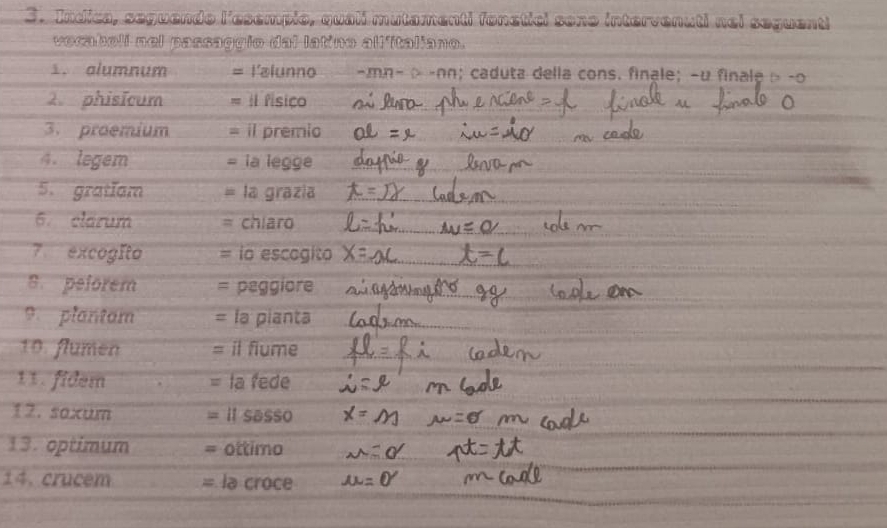 3. Indica, seguendo l'esempio, quali mutamenti fonetici sono intervenuti nei seguenti
vocaboli nel passaggio dal latino all'italiano.
1. alumnum = l'alunno -mn- ▷ -nn; caduta della cons. finale; -u finale ▷ -o
2. phisĭcum = il fisico si leva ph e = f finale u finale o
3. praemium = il premio ae = e iu = io m cade
4. legem = la legge doppia g leva m
5. gratiam = la grazia t = z cade m
6. clarum = chiaro l = hi u = o cade m
7. excogĭto = io escogito x = sc t = c
8. peiorem = peggiore si aggiungono gg cade em
9. plantam = la pianta cade m
10. flumen = il fiume fl = fi cade n
11. fidem = la fede i = e m cade
12. saxum = il sasso x = ss u = o m cade
13. optimum = ottimo u = o pt = tt
14. crucem = la croce u = o m cade